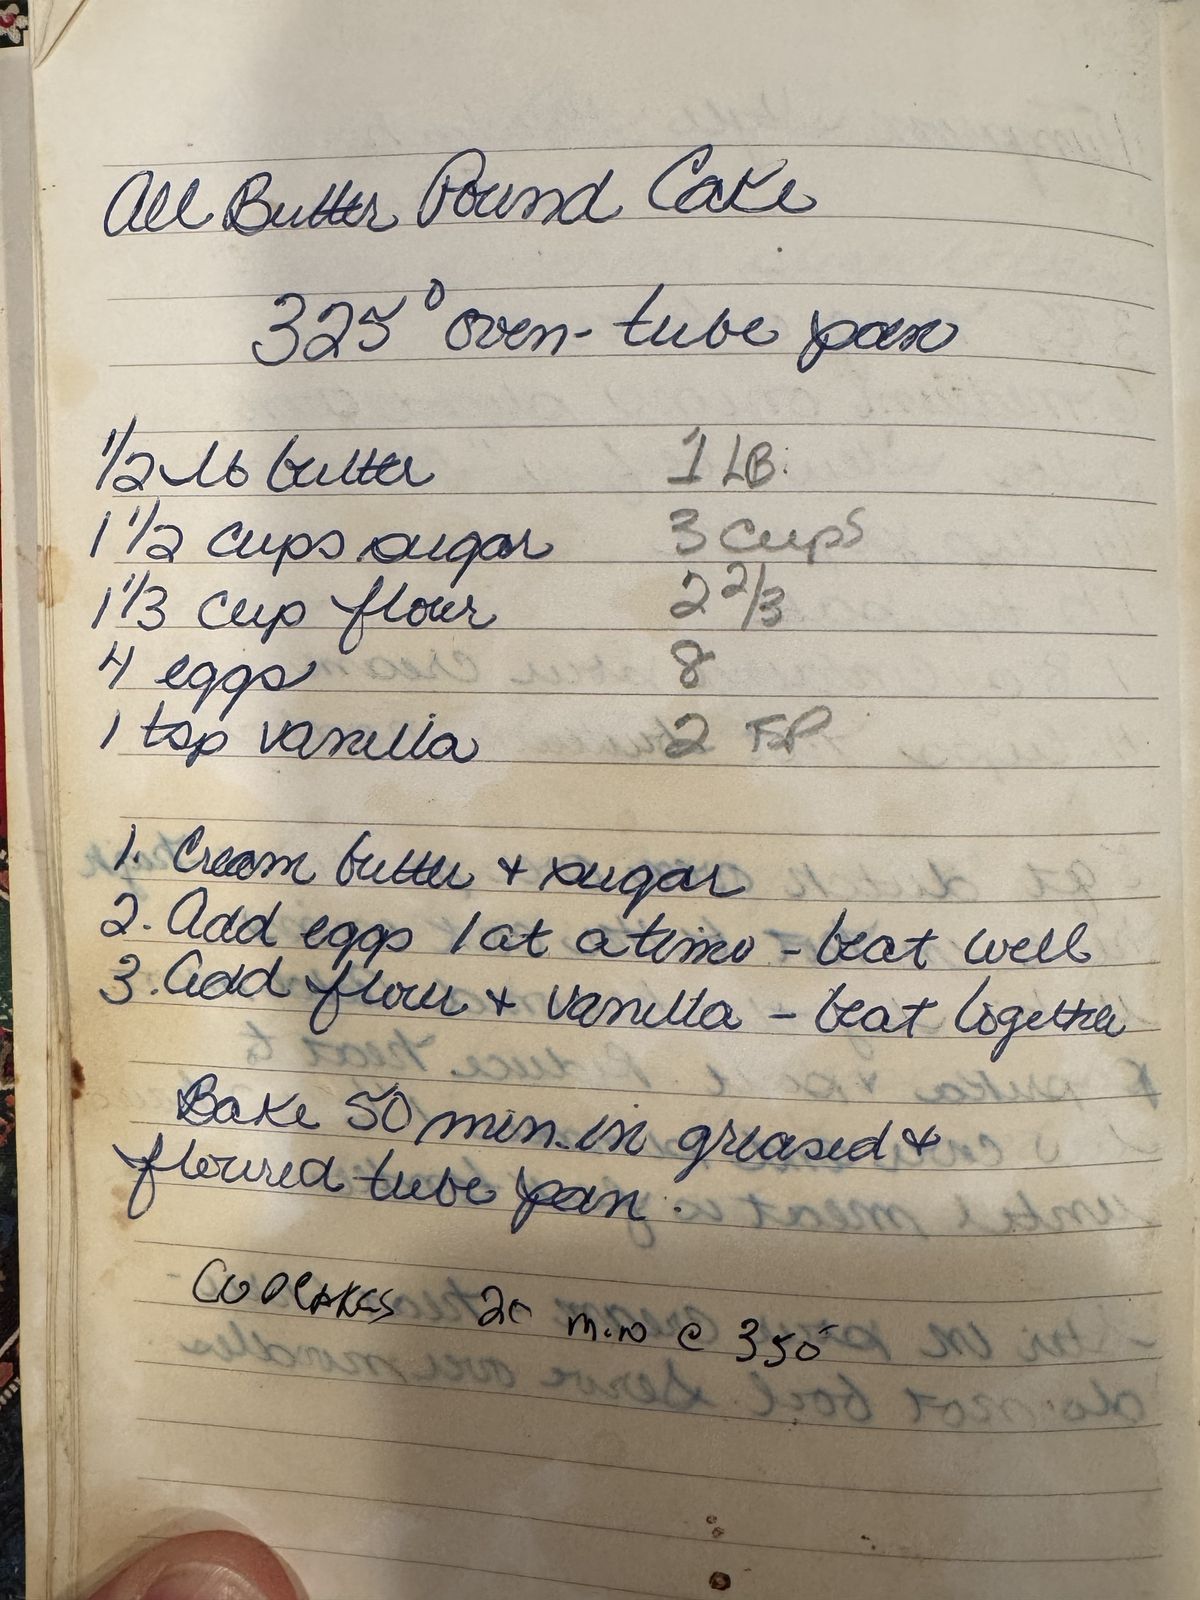 All Butter Pound Cake
325° oven - tube pan
1/2 lb butter 1 LB.
1 1/2 cups sugar 3 cups
1 1/3 cup flour 2 2/3
4 eggs 8
1 tsp vanilla 2 TSP
1. Cream butter + sugar
2. Add eggs 1 at a time - beat well
3. Add flour + vanilla - beat together
Bake 50 min. in greased +
floured tube pan.
CUPCAKES 20 min @ 350°